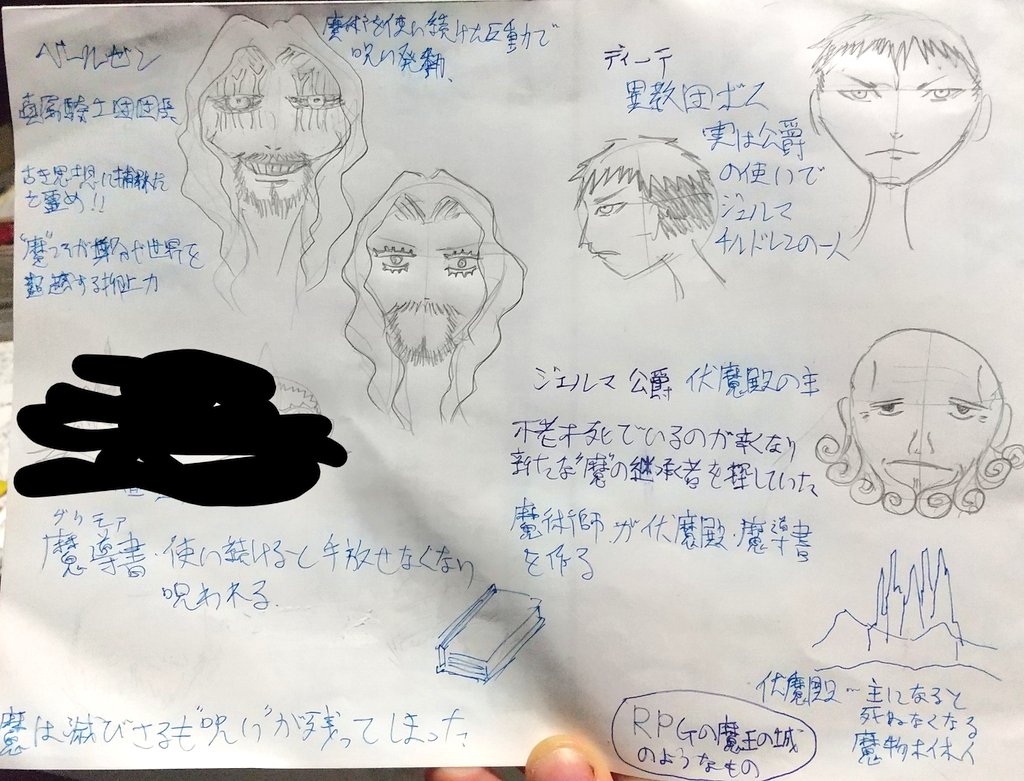 ベールゼン
直属騎士団団長
魔術を使い続けた反動で
呪い発動、
古き思想に
め!!
“魔”こそが
世界を
する抑止力
ディーテ
異教団ボス
実は公爵
の使いで
ジェルマ
チルドレンの一人
ジェルマ公爵 伏魔殿の主
不老不死でいるのが辛くなり
新たな“魔”の継承者を探していた
魔術師が伏魔殿・魔導書
を作る
グリモア
魔導書・使い続けると手放せなくなり
呪われる.
伏魔殿…主になると
死ねなくなる
魔物ホイホイ
RPGの魔王の城
のようなもの
魔は滅びさるも“呪い”が残ってしまった